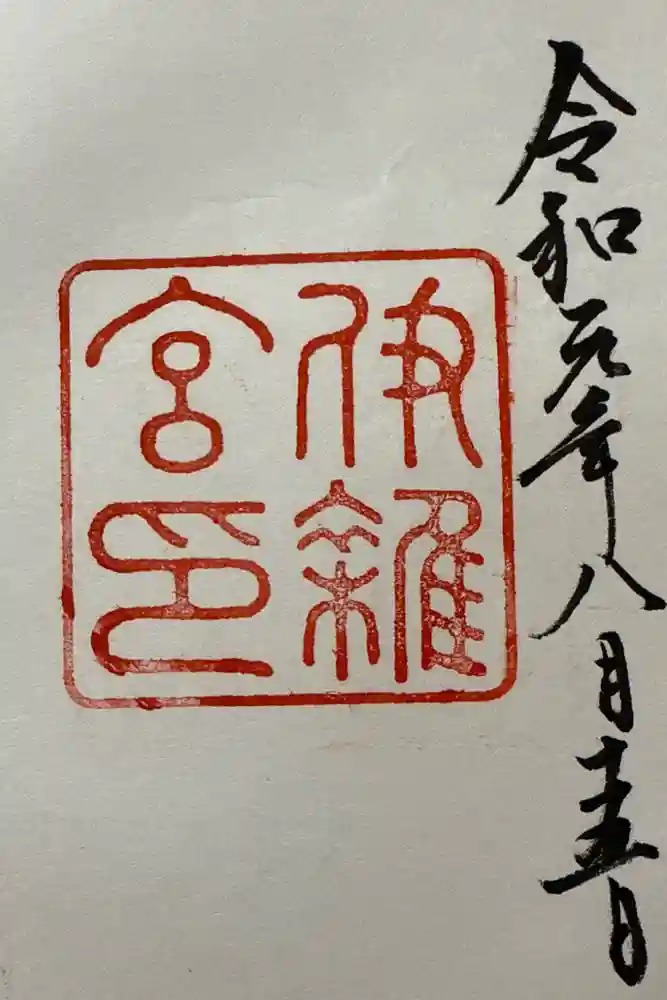 令和元年八月十五日
伊雜
宮印